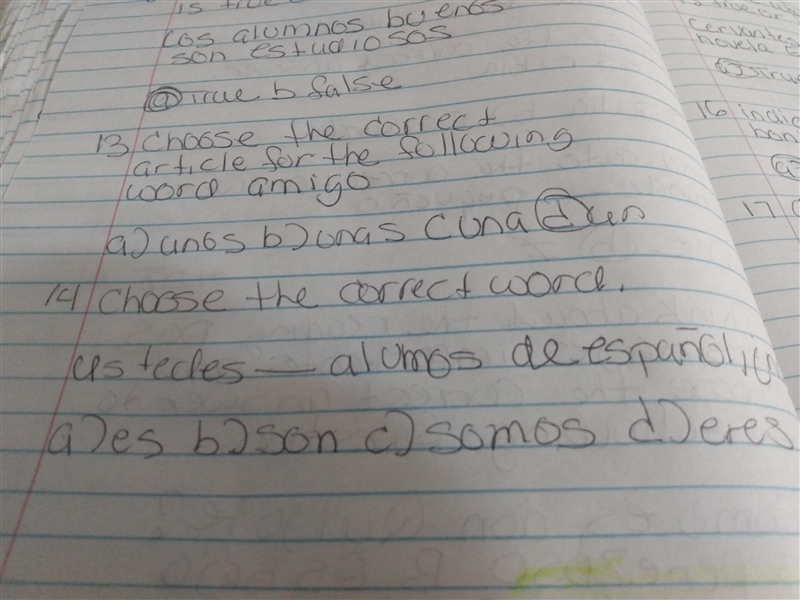 is true
Los alumnos buenos
son estudiosos
a True b false
13 Choose the correct
article for the following
word amigo
a) unos b) unas c una d un
14 Choose the correct word.
ustedes — alumos de español
a) es b) son c) somos d) eres
Cervantes
novela
a) True
16 indic
17